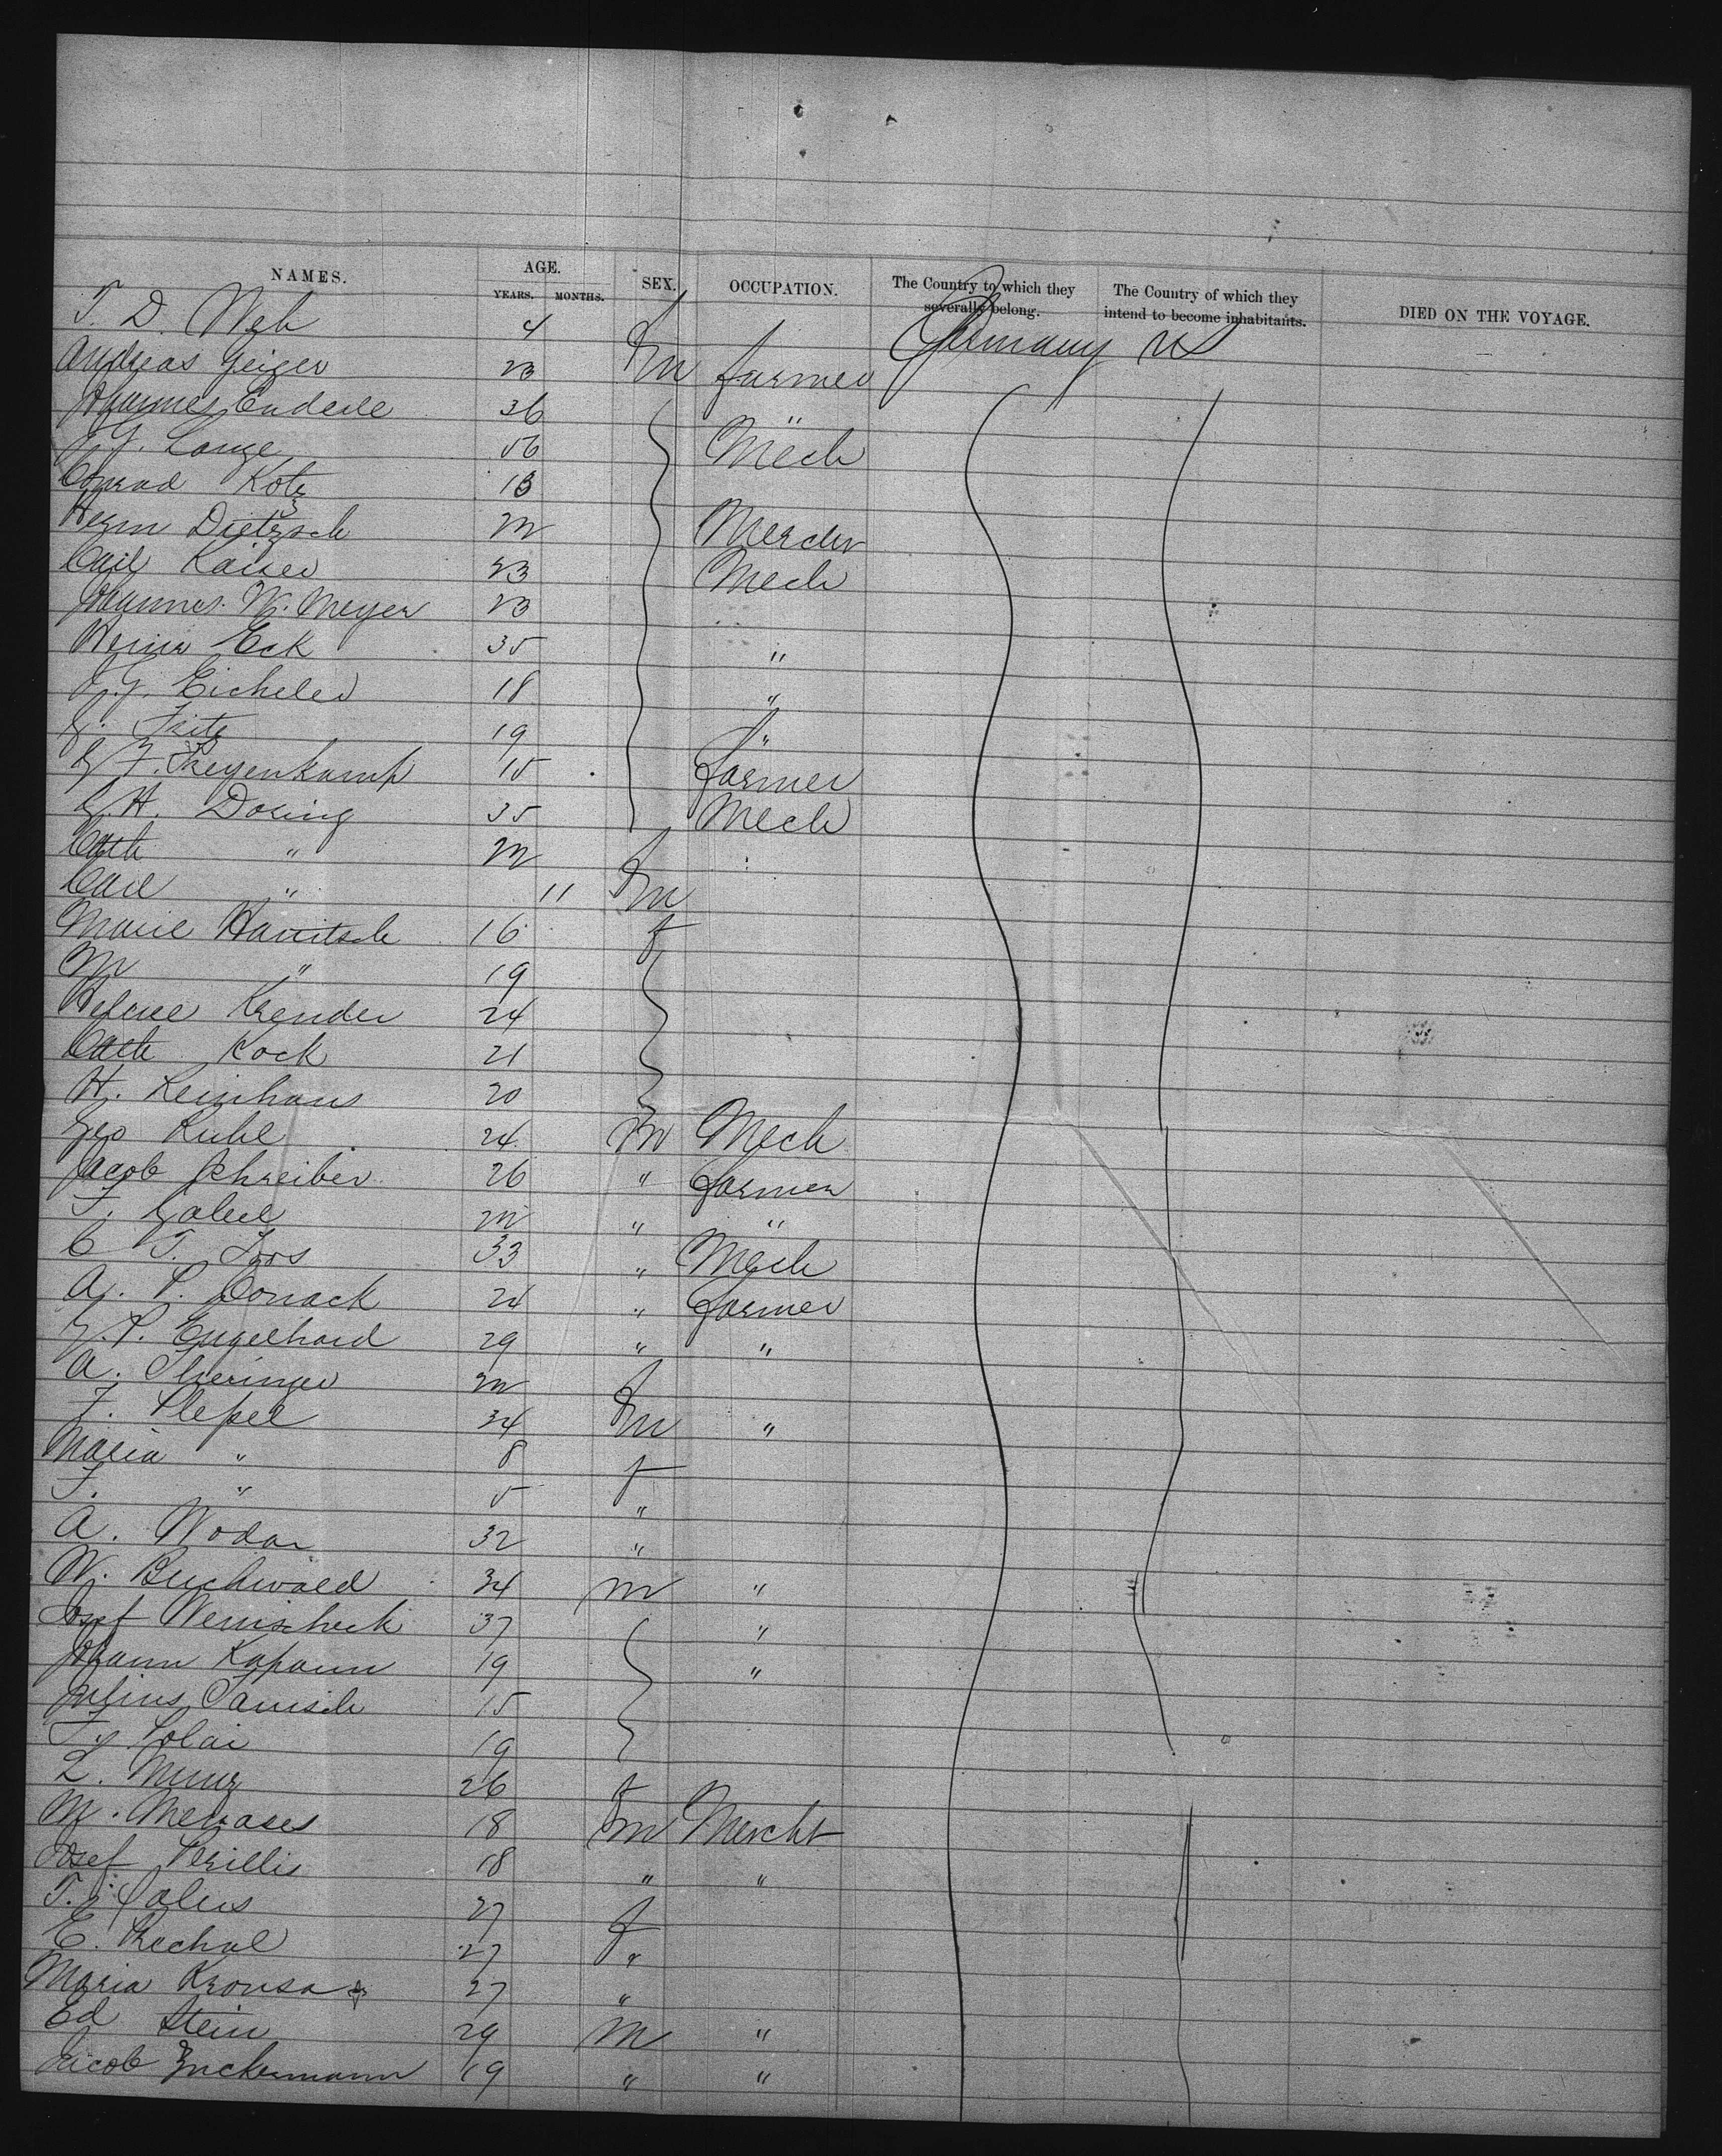 NAMES. AGE. YEARS. MONTHS. SEX. OCCUPATION. The Country to which they severally belong. The Country of which they intend to become inhabitants. DIED ON THE VOYAGE.
T. D. Web 4 Germany US
Andreas Geiger 23 m farmer
Johannes Enderle 36 "
J. G. Lange 56 Mech
Conrad Kotz 18
Herm Dietzsch 22 Mercht
Carl Kaiser 23 Mech
Johannes W. Meyer 23
Heinr Eck 35 "
J. G. Eicheler 18 "
G. Fritz 19 "
G F. Regenkamp 15 farmer
G. H. Doring 35 Mech
Cath " 22 f
Carl " 11 m
Marie Havitsch 16 f
M " 19
Helene Krender 24
Cath Kock 21
H. Reinhaus 20
Geo Kuhl 24 m Mech
Jacob Schreiber 26 " farmer
F. Gabel 22 " "
C T. Foos 33 " Mech
A. P. Conack 24 " farmer
G. P. Engelhard 29 " "
A. Theringer 22 f
F. Plessel 34 m "
Maria " 8 f
F. " 5 "
A. Wodar 32 "
W. Buchwald 34 m "
Josef Wenischek 37 "
Johann Kapaun 19 "
Julius Janisch 15
F. Polai 19
L. Munz 26 f
M. Menases 18 m Mercht
Josef Perillis 18 " "
T. 27 f
E. Rechal 27 "
Maria Krousa 27 "
Ed Stein 29 m "
Jacob Zuckermann 19 " "